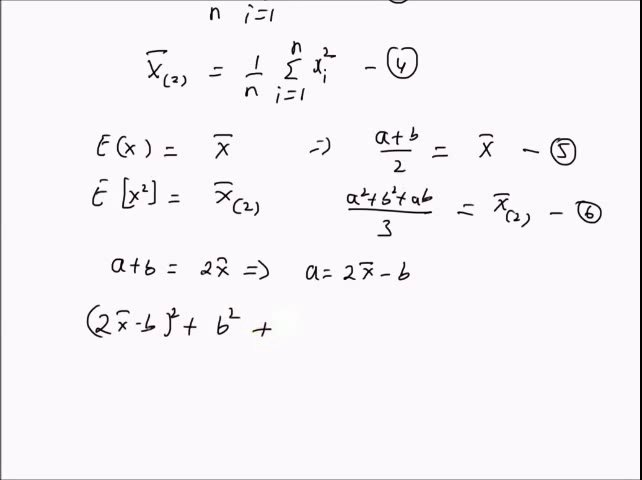 n i=1
x̄₍₂₎ = 1/n Σⁿᵢ₌₁ xᵢ² - ④
E(x) = x̄ => (a+b)/2 = x̄ - ⑤
E[x²] = x̄₍₂₎ (a²+b²+ab)/3 = x̄₍₂₎ - ⑥
a+b = 2x̄ => a = 2x̄ - b
(2x̄-b)² + b² +